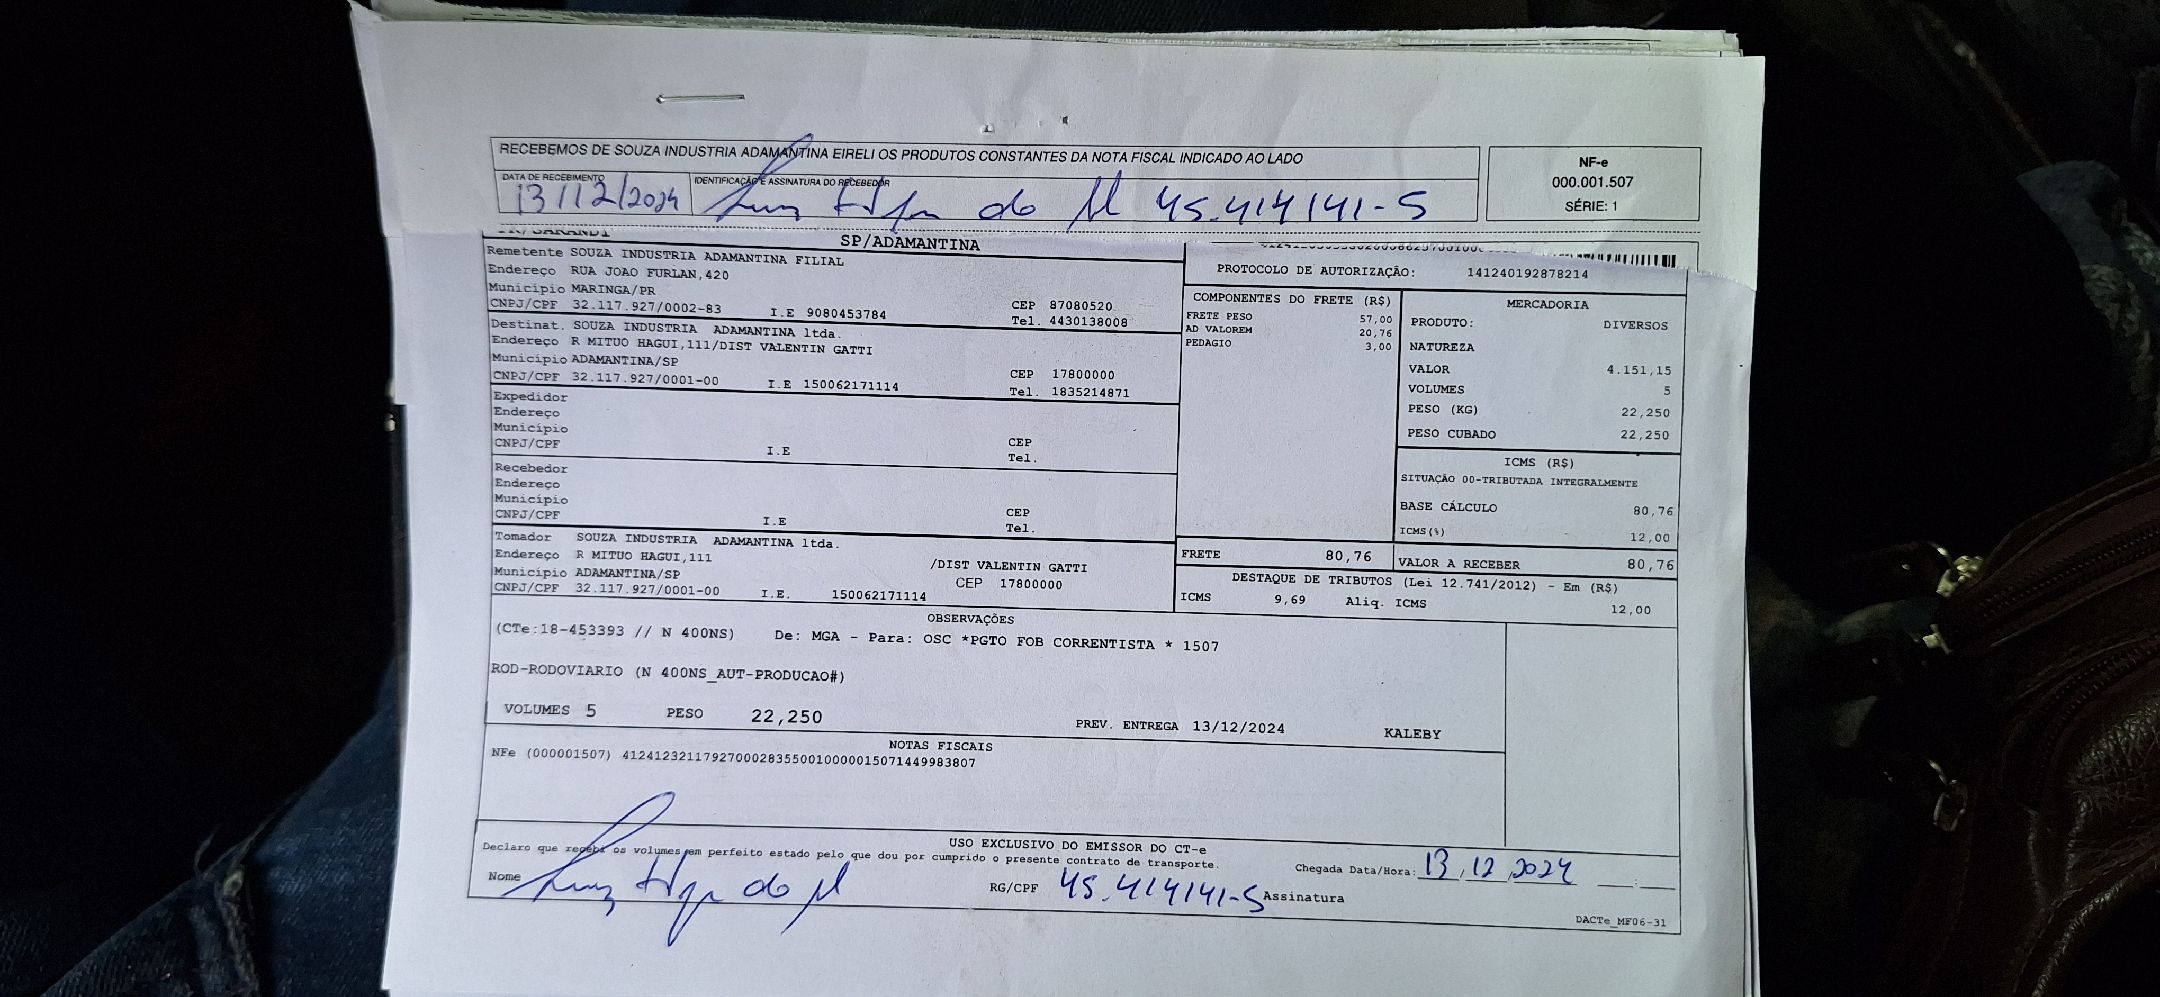 RECEBEMOS DE SOUZA INDUSTRIA ADAMANTINA EIRELI OS PRODUTOS CONSTANTES DA NOTA FISCAL INDICADO AO LADO
DATA DE RECEBIMENTO
IDENTIFICAÇÃO E ASSINATURA DO RECEBEDOR
13/12/2024
45.414141-5
NF-e
000.001.507
SÉRIE: 1
SP/ADAMANTINA
Remetente SOUZA INDUSTRIA ADAMANTINA FILIAL
Endereço RUA JOAO FURLAN,420
Município MARINGA/PR
CNPJ/CPF 32.117.927/0002-83 I.E 9080453784
CEP 87080520
Tel. 4430138008
Destinat. SOUZA INDUSTRIA ADAMANTINA ltda.
Endereço R MITUO HAGUI,111/DIST VALENTIN GATTI
Município ADAMANTINA/SP
CNPJ/CPF 32.117.927/0001-00 I.E 150062171114
CEP 17800000
Tel. 1835214871
Expedidor
Endereço
Município
CNPJ/CPF I.E
CEP
Tel.
Recebedor
Endereço
Município
CNPJ/CPF I.E
CEP
Tel.
Tomador SOUZA INDUSTRIA ADAMANTINA ltda.
Endereço R MITUO HAGUI,111 /DIST VALENTIN GATTI
Município ADAMANTINA/SP CEP 17800000
CNPJ/CPF 32.117.927/0001-00 I.E. 150062171114
PROTOCOLO DE AUTORIZAÇÃO: 141240192878214
COMPONENTES DO FRETE (R$)
FRETE PESO 57,00
AD VALOREM 20,76
PEDAGIO 3,00
MERCADORIA
PRODUTO: DIVERSOS
NATUREZA
VALOR 4.151,15
VOLUMES 5
PESO (KG) 22,250
PESO CUBADO 22,250
ICMS (R$)
SITUAÇÃO 00-TRIBUTADA INTEGRALMENTE
BASE CÁLCULO 80,76
ICMS(%) 12,00
FRETE 80,76
VALOR A RECEBER 80,76
DESTAQUE DE TRIBUTOS (Lei 12.741/2012) - Em (R$)
ICMS 9,69 Aliq. ICMS 12,00
OBSERVAÇÕES
(CTe:18-453393 // N 400NS) De: MGA - Para: OSC *PGTO FOB CORRENTISTA * 1507
ROD-RODOVIARIO (N 400NS_AUT-PRODUCAO#)
VOLUMES 5 PESO 22,250 PREV. ENTREGA 13/12/2024 KALEBY
NOTAS FISCAIS
NFe (000001507) 41241232117927000283550010000015071449983807
USO EXCLUSIVO DO EMISSOR DO CT-e
Declaro que recebi os volumes em perfeito estado pelo que dou por cumprido o presente contrato de transporte.
Chegada Data/Hora: 13,12,2024
Nome
RG/CPF 45.414141-5 Assinatura
DACTe_MF06-31